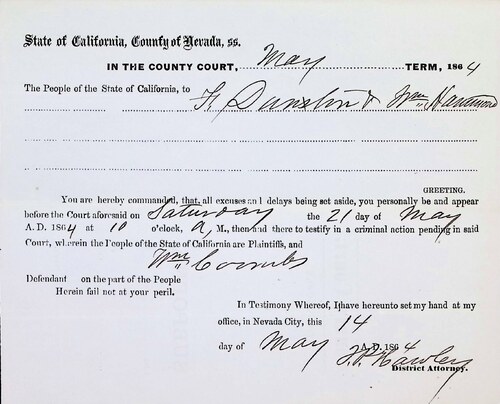 State of California, County of Nevada, ss.
IN THE COUNTY COURT, May TERM, 1864
The People of the State of California, to F. Dunston & Wm
GREETING.
You are hereby commanded, that, all excuses and delays being set aside, you personally be and appear
before the Court aforesaid on Saturday the 21 day of May
A. D. 1864 at 10 o'clock, A, M., then and there to testify in a criminal action pending in said
Court, wherein the People of the State of California are Plaintiffs, and
Wm Coombs
Defendant on the part of the People
Herein fail not at your peril.
In Testimony Whereof, I have hereunto set my hand at my
office, in Nevada City, this 14
day of May A. D. 1864
T. P. Hawley
District Attorney.